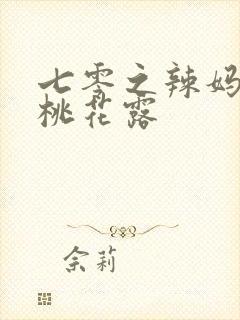 七零之辣妈
桃花露
佘莉